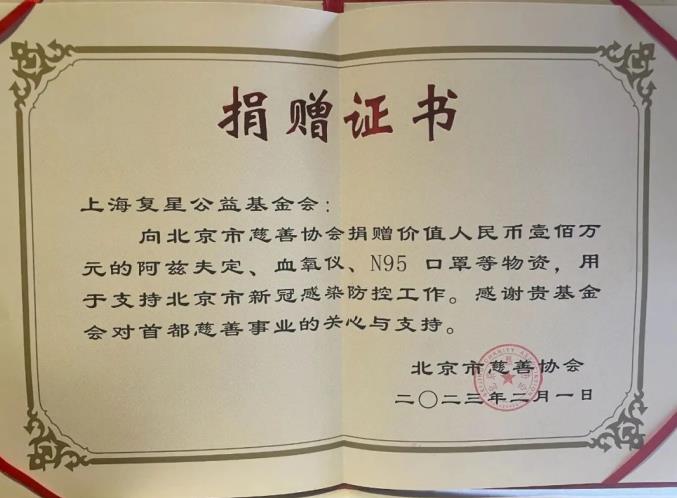 捐赠证书
上海复星公益基金会：
向北京市慈善协会捐赠价值人民币壹佰万
元的阿兹夫定、血氧仪、N95 口罩等物资，用
于支持北京市新冠感染防控工作。感谢贵基金
会对首都慈善事业的关心与支持。
北京市慈善协会
二〇二三年二月一日